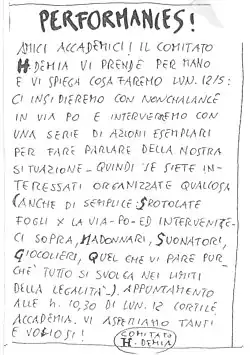 PERFORMANCES!
AMICI ACCADEMICI! IL COMITATO
H.DEMIA VI PRENDE PER MANO
E VI SPIEGA COSA FAREMO LUN. 12/5:
CI INSIDIEREMO CON NONCHALANCE
IN VIA PO E INTERVERREMO CON
UNA SERIE DI AZIONI ESEMPLARI
PER FARE PARLARE DELLA NOSTRA
SITUAZIONE - QUINDI SE SIETE IN-
TERESSATI ORGANIZZATE QUALCOSA
(ANCHE DI SEMPLICE: SROTOLATE
FOGLI X LA VIA-PO-ED INTERVENITE-
CI SOPRA, MADONNARI, SUONATORI,
GIOCOLIERI, QUEL CHE VI PARE PUR-
CHE' TUTTO SI SVOLGA NEI LIMITI
DELLA LEGALITÀ). APPUNTAMENTO
ALLE h. 10,30 DI LUN. 12 CORTILE
ACCADEMIA. VI ASPETTIAMO TANTI
E VOGLIOSI!
COMITATO
H.DEMIA